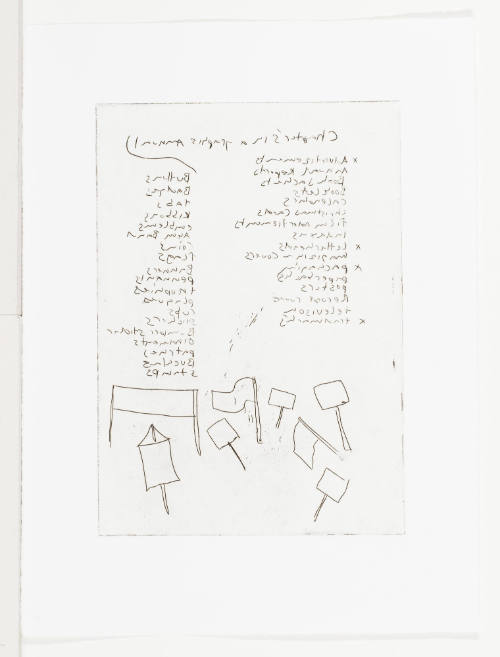 Chapter's in a graphis Annual
x Advertisements
Annual Reports
Book Jackets
Booklets
Calendars
Christmas Cards
Film Advertisements
x Letterheads
Magazine Covers
x packaging
paperbacks
posters
Record covers
Television
x trademarks
Buttons
Badges
tabs
Ribbons
emblems
Arm Band
coins
Flags
Banners
pennants
trophies
plaques
cups
stickers
Bumper sticker
ornaments
patches
Buckles
stamps